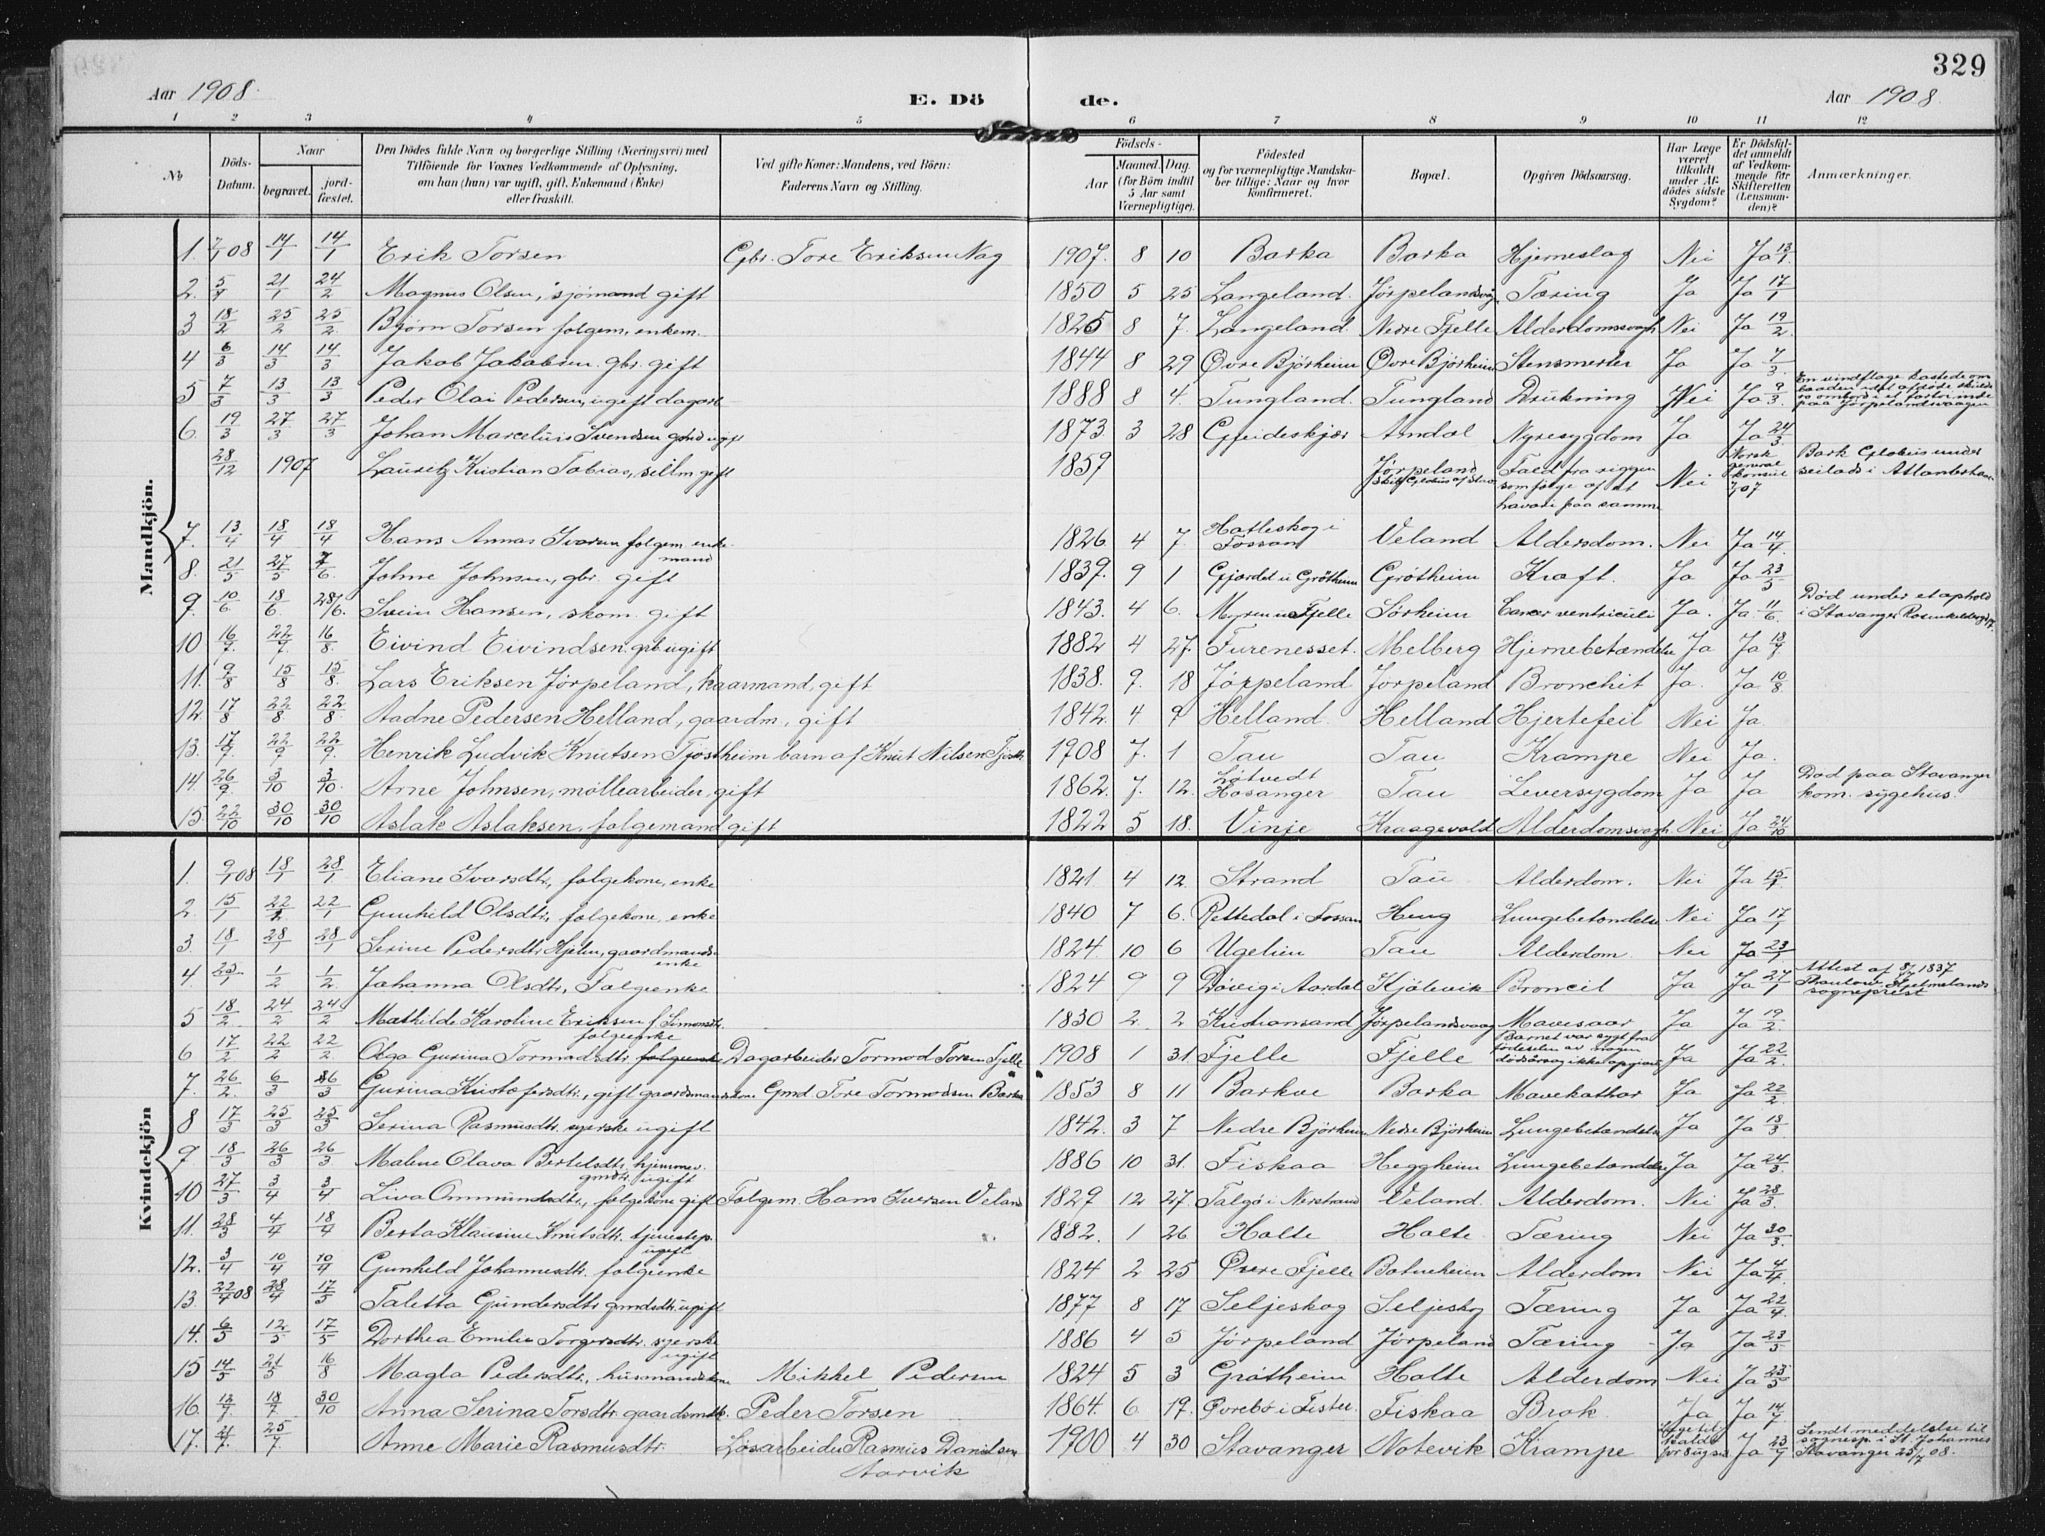 329
Aar 1908.
E. Dö de.
Aar 1908.
1 2 3 4 5 6 7 8 9 10 11 12
No
Döds-Datum.
Naar
begravet.
jord-fæstet.
Den Dödes fulde Navn og borgerlige Stilling (Næringsvei) med
Tilföiende for Voxnes Vedkommende af Oplysning,
om han (hun) var ugift, gift, Enkemand (Enke)
eller fraskilt.
Ved gifte Koner: Mandens, ved Börn:
Faderens Navn og Stilling.
Födsels-
Aar
Maaned. Dag.
(for Börn indtil
5 Aar samt
Værnepligtige).
Födested
og for værnepligtige Mandska-
ber tillige: Naar og hvor
konfirmeret.
Bopæl.
Opgiven Dödsaarsag.
Har Læge
været
tilkaldt
under Af-
dödes sidste
Sygdom?
Er Dödsfal-
det anmeldt
af Vedkom-
mende for
Skifteretten
(Lensman-
den)?
Anmærkninger.
Mandkjön.
1. 7/1 08 14/1 14/1 Erik Torsen Gbr. Tore Eriksen Nag 1907. 8 10 Barka Barka Hjerneslag Nei Ja 13/1.
2. 5/1 21/1 24/2 Magnus Olsen, sjömand gift 1850 5 25 Langeland. Jørpelandsvåg Tæring Ja Ja 17/1
3 18/2 25/2 25/2. Bjørn Torsen folgem. enkem. 1825 8 7. Langeland. Nedre Fjelle Alderdomssvagh Nei Ja 19/2.
4 6/3 14/3 14/3 Jakob Jakobsen. gbr. gift 1844 8 29 Øvre Bjørheim Øvre Bjørheim Stensmerter Ja Ja 7/3.
5 7/3 13/3 13/3 Peder Olai Pedersen, ugift dagarb. 1888 8 4. Tungland. Tungland Drukning Nei Ja 9/3. En vindflage kastede om
baaden idet afdøde skulde
paa Jørpelandsvaagen
6. 19/3 27/3 27/3 Johan Marcelius Svendsen gmd ugift 1873 3 28 Gjeideskjær Amdal Nyresygdom Ja Ja 24/3.
28/12 1907 Lauretz Kristian Tobias, seilm. gift 1859 Jørpeland Fald fra riggen
som følge af et
havari paa samme Nei Norsk
general
konsul
7/07 Bark Glebius under
seilads i Atlanterhav
7. 13/4 18/4 18/4 Hans Annas Ivarsen folgem. enke-
mand 1826 4 7. Hatleskog i
Fossan Veland Aldersdom. Nei Ja 14/4.
8. 21/5 27/5 7/6. Johne Johnsen, gbr. gift 1839. 9 1 Gjerdet u Grötheim Grötheim Kræft. Ja Ja 23/5
9. 10/6 18/6. 28/6. Svein Hansen, skom. gift 1843. 4 6. Myren u Fjelle Sørheim Cancer ventriculi Ja. Ja. 11/6. Død under et ophold
i Stavanger
10 16/7. 22/7. 16/8. Eivind Eivindsen. grb ugift 1882 4 27. Furenesset. Melberg Hjernebetændelse Ja Ja 18/7
11. 9/8 15/8 15/8. Lars Eriksen Jørpeland, kaarmand, gift 1838. 9. 18 Jørpeland Jørpeland Bronchit Ja. Ja 10/8
12. 17/8 22/8 22/8. Aadne Pedersen Helland, gaardm, gift 1842. 4 9 Helland. Helland Hjertefeil Nei Ja.
13. 17/9. 22/9 22/9. Henrik Ludvik Knutsen Tjøstheim barn af Knut Nilsen Tjøsth. 1908 7. 1 Tau Tau Krampe Nei Ja.
14. 26/9. 3/10 3/10. Arne Johnsen, møllearbeider, gift 1862. 7. 12. Løtvedt
Hosanger Tau Leversygdom Ja Ja Død paa Stavanger
kom. sygehus.
15. 22/10 30/10 30/10 Aslak Aslaksen, folgemand gift 1822 5 18. Vinje Kraagevold Alderdomssvagh. Nei Ja 24/10
Kvindekjön
1. 9/1 08 18/1 28/1 Eliane Ivarsdtr, folgekone, enke 1821 4 12. Strand Tau Alderdom. Nei Ja 15/1.
2. 15/1 22/1 22/1 Gunhild Olsdtr, folgekone, enke 1840 7 6. Rettedal i Fossan Heng Lungebetændelse Nei Ja 17/1
3. 18/1 28/1 28/1 Serine Pedersdtr Hjelm, gaardmands
enke 1824. 10 6 Ugelien Tau Alderdom Nei Ja 23/1
4. 25/1 1/2 1/2. Johanna Olsdtr, Folgienke 1824 9 9 Døvig i Aardal Kjølevik Broncit Ja Ja 27/1 Attest af 8/7 1837
Hjelmelands
sogneprest
5 18/2. 24/2 24/2 Mathilde Karoline Eriksen f. Simonsdtr.
folgienke 1830 2. 2 Kristiansand Jørpelandsvaag Mavesaar Ja Ja 19/2
6 17/2 22/2 22/2 Olga Gurina Tormodsdtr. folgienke Dagarbeider Tormod Torsen Fjelle 1908 1 31. Fjelle Fjelle Barnet var sygt fra
fødselen av nogen
dødsårsag ikke opgivet Ja Ja 22/2.
7. 26/2. 6/3 26/3 Gurina Kristofersdtr, gift gaardmandskone Gmd Tore Tormodsen Barka 1853 8 11 Barkoe Barka Mavekathar Ja Ja 22/2.
8 17/3 25/3 25/3 Serina Rasmusdtr. syerske ugift 1842. 3 7 Nedre Bjørheim Nedre Bjørheim Lungebetændelse Ja Ja 18/3.
9 18/3 26/3 26/3 Malene Olava Bertelsdtr. hjemmev.
gmdtr. ugift 1886 10 31. Fiskaa Heggheim Lungebetændelse Ja Ja 24/3.
10 27/3 3/4 3/4 Liva Ommundsdtr, folgekone gift Folgem. Hans Iversen Veland 1829 12 27. Talgø i Nerstrand Veland. Alderdom. Nei Ja 28/3.
11. 28/3 4/4 18/4 Berta Klausine Knutsdtr. tjenestep.
ugift 1882. 1 26 Holte Holte Tæring Nei Ja 30/3.
12. 3/4 10/4 10/4 Gunhild Johannesdtr. folgienke 1824 2 25 Øvre Fjelle Botneheien Alderdom Nei Ja 4/4.
13. 22/4 08 28/4 17/5 Taletta Gundersdtr gmdsdtr. ugift 1877 8 17 Seljeskog Seljeskog Tæring Ja Ja 22/4.
14. 6/5 12/5 17/5 Dorthea Emilie Torgersdtr. syerske
ugift 1886 4 5 Jørpeland Jørpeland Tæring Ja Ja 23/5
15 14/5 21/5 16/8 Magla Pedersdtr, husmandskone Mikkel Pedersen 1824 5 3 Grøtheim Holte Alderdom Nei Ja 25/5
16. 12/7. 18/7 30/10 Anna Serina Torsdtr. gaardsmdk. Peder Torsen 1864. 6. 19. Øvrebø i Fister. Fiskaa Brok Ja Ja 14/7
17. 21/7. 25/7 Anne Marie Rasmusdtr. Løsarbeider Rasmus Danielsen
Aarvik 1900 4 30 Stavanger Notevik Krampe Læge til-
kaldt
for Ja 23/7 Sendt meddelelse til
sognep. i St. Johannes
Stavanger 25/7 08.